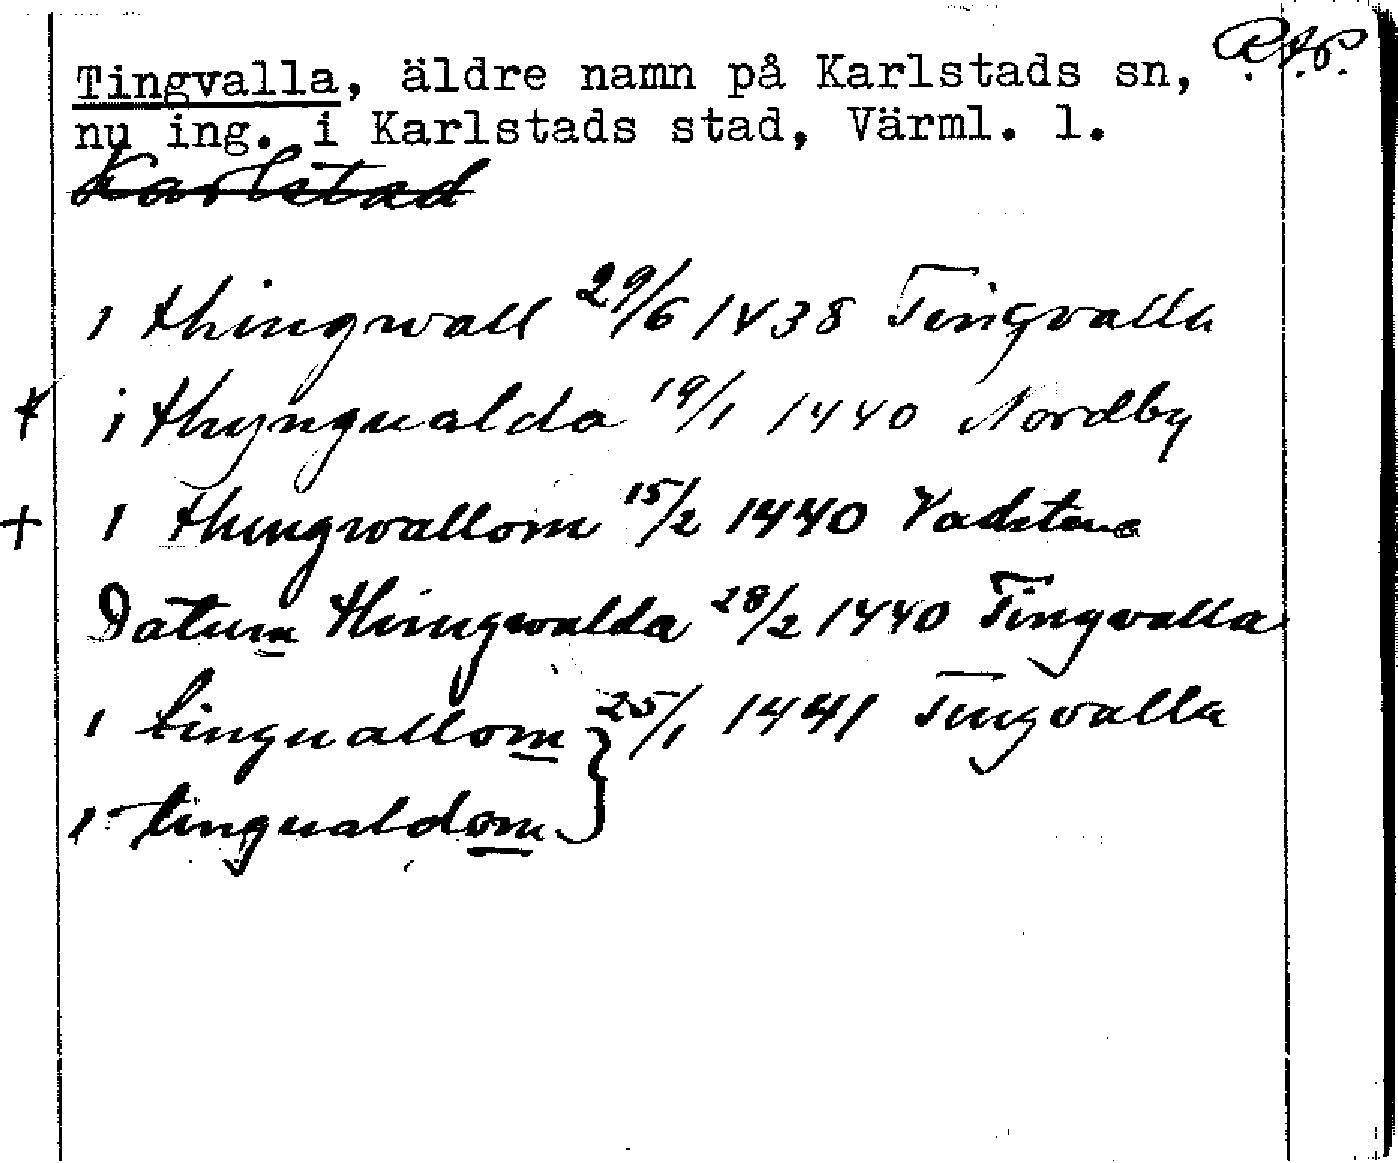 Tingvalla, äldre namn på Karlstads sn, R.A.P.
nu ing. i Karlstads stad, Värml. l.
Karlstad
i thingwall 29/6 1438 Tingvalla
+ i thyngualda 19/1 1440 Nordby
+ i thingwallom 15/2 1440 Vadstena
Datum thingwalda 28/2 1440 Tingvalla
i tinguallom } 25/1 1441 Tingvalla
i tingualdom